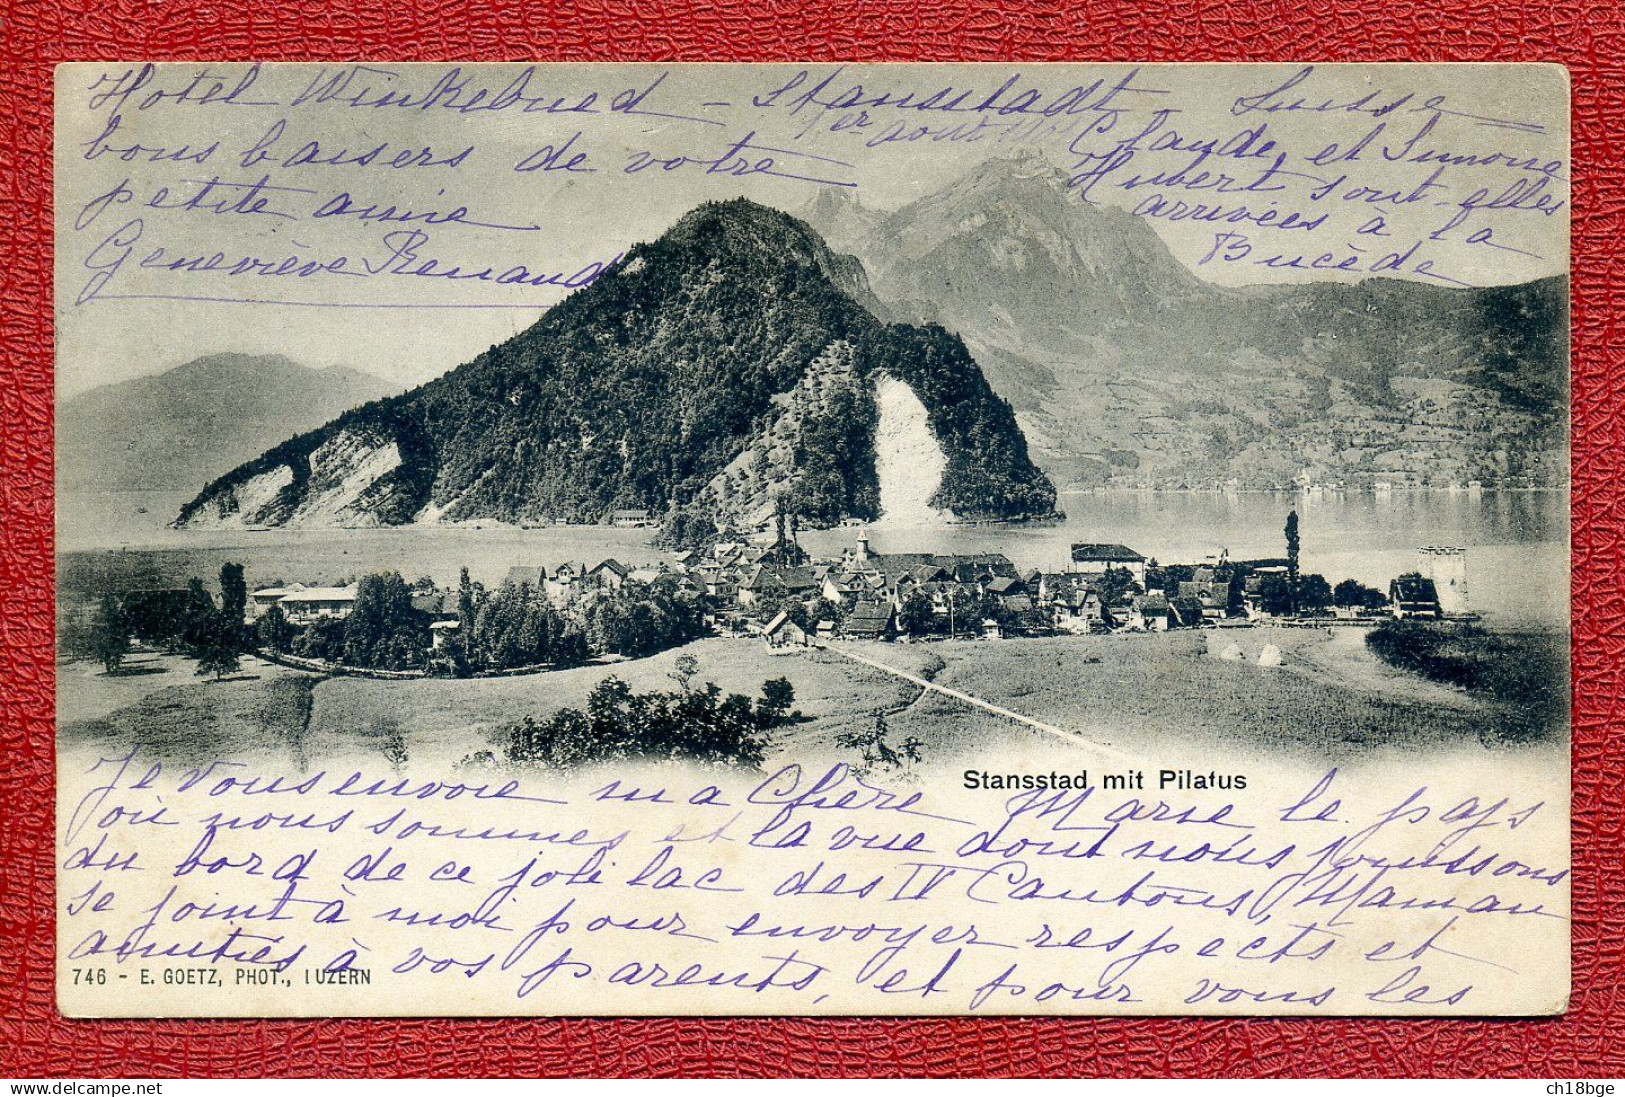 Hotel Winkelried - Stansstadt - Suisse
1er août
Claude, et Simone
Hubert sont-elles
arrivées à la
Bucède
bons baisers de votre
petite amie
Geneviève Renaud
Stansstad mit Pilatus
Je vous envoie ma Chère Marie le pays
où nous sommes et la vue dont nous jouissons
du bord de ce joli lac des IV Cantons, Maman
se joint à moi pour envoyer respects et
amitiés à vos parents, et pour vous les
746 - E. GOETZ, PHOT., LUZERN
delcampe.net
ch18bge